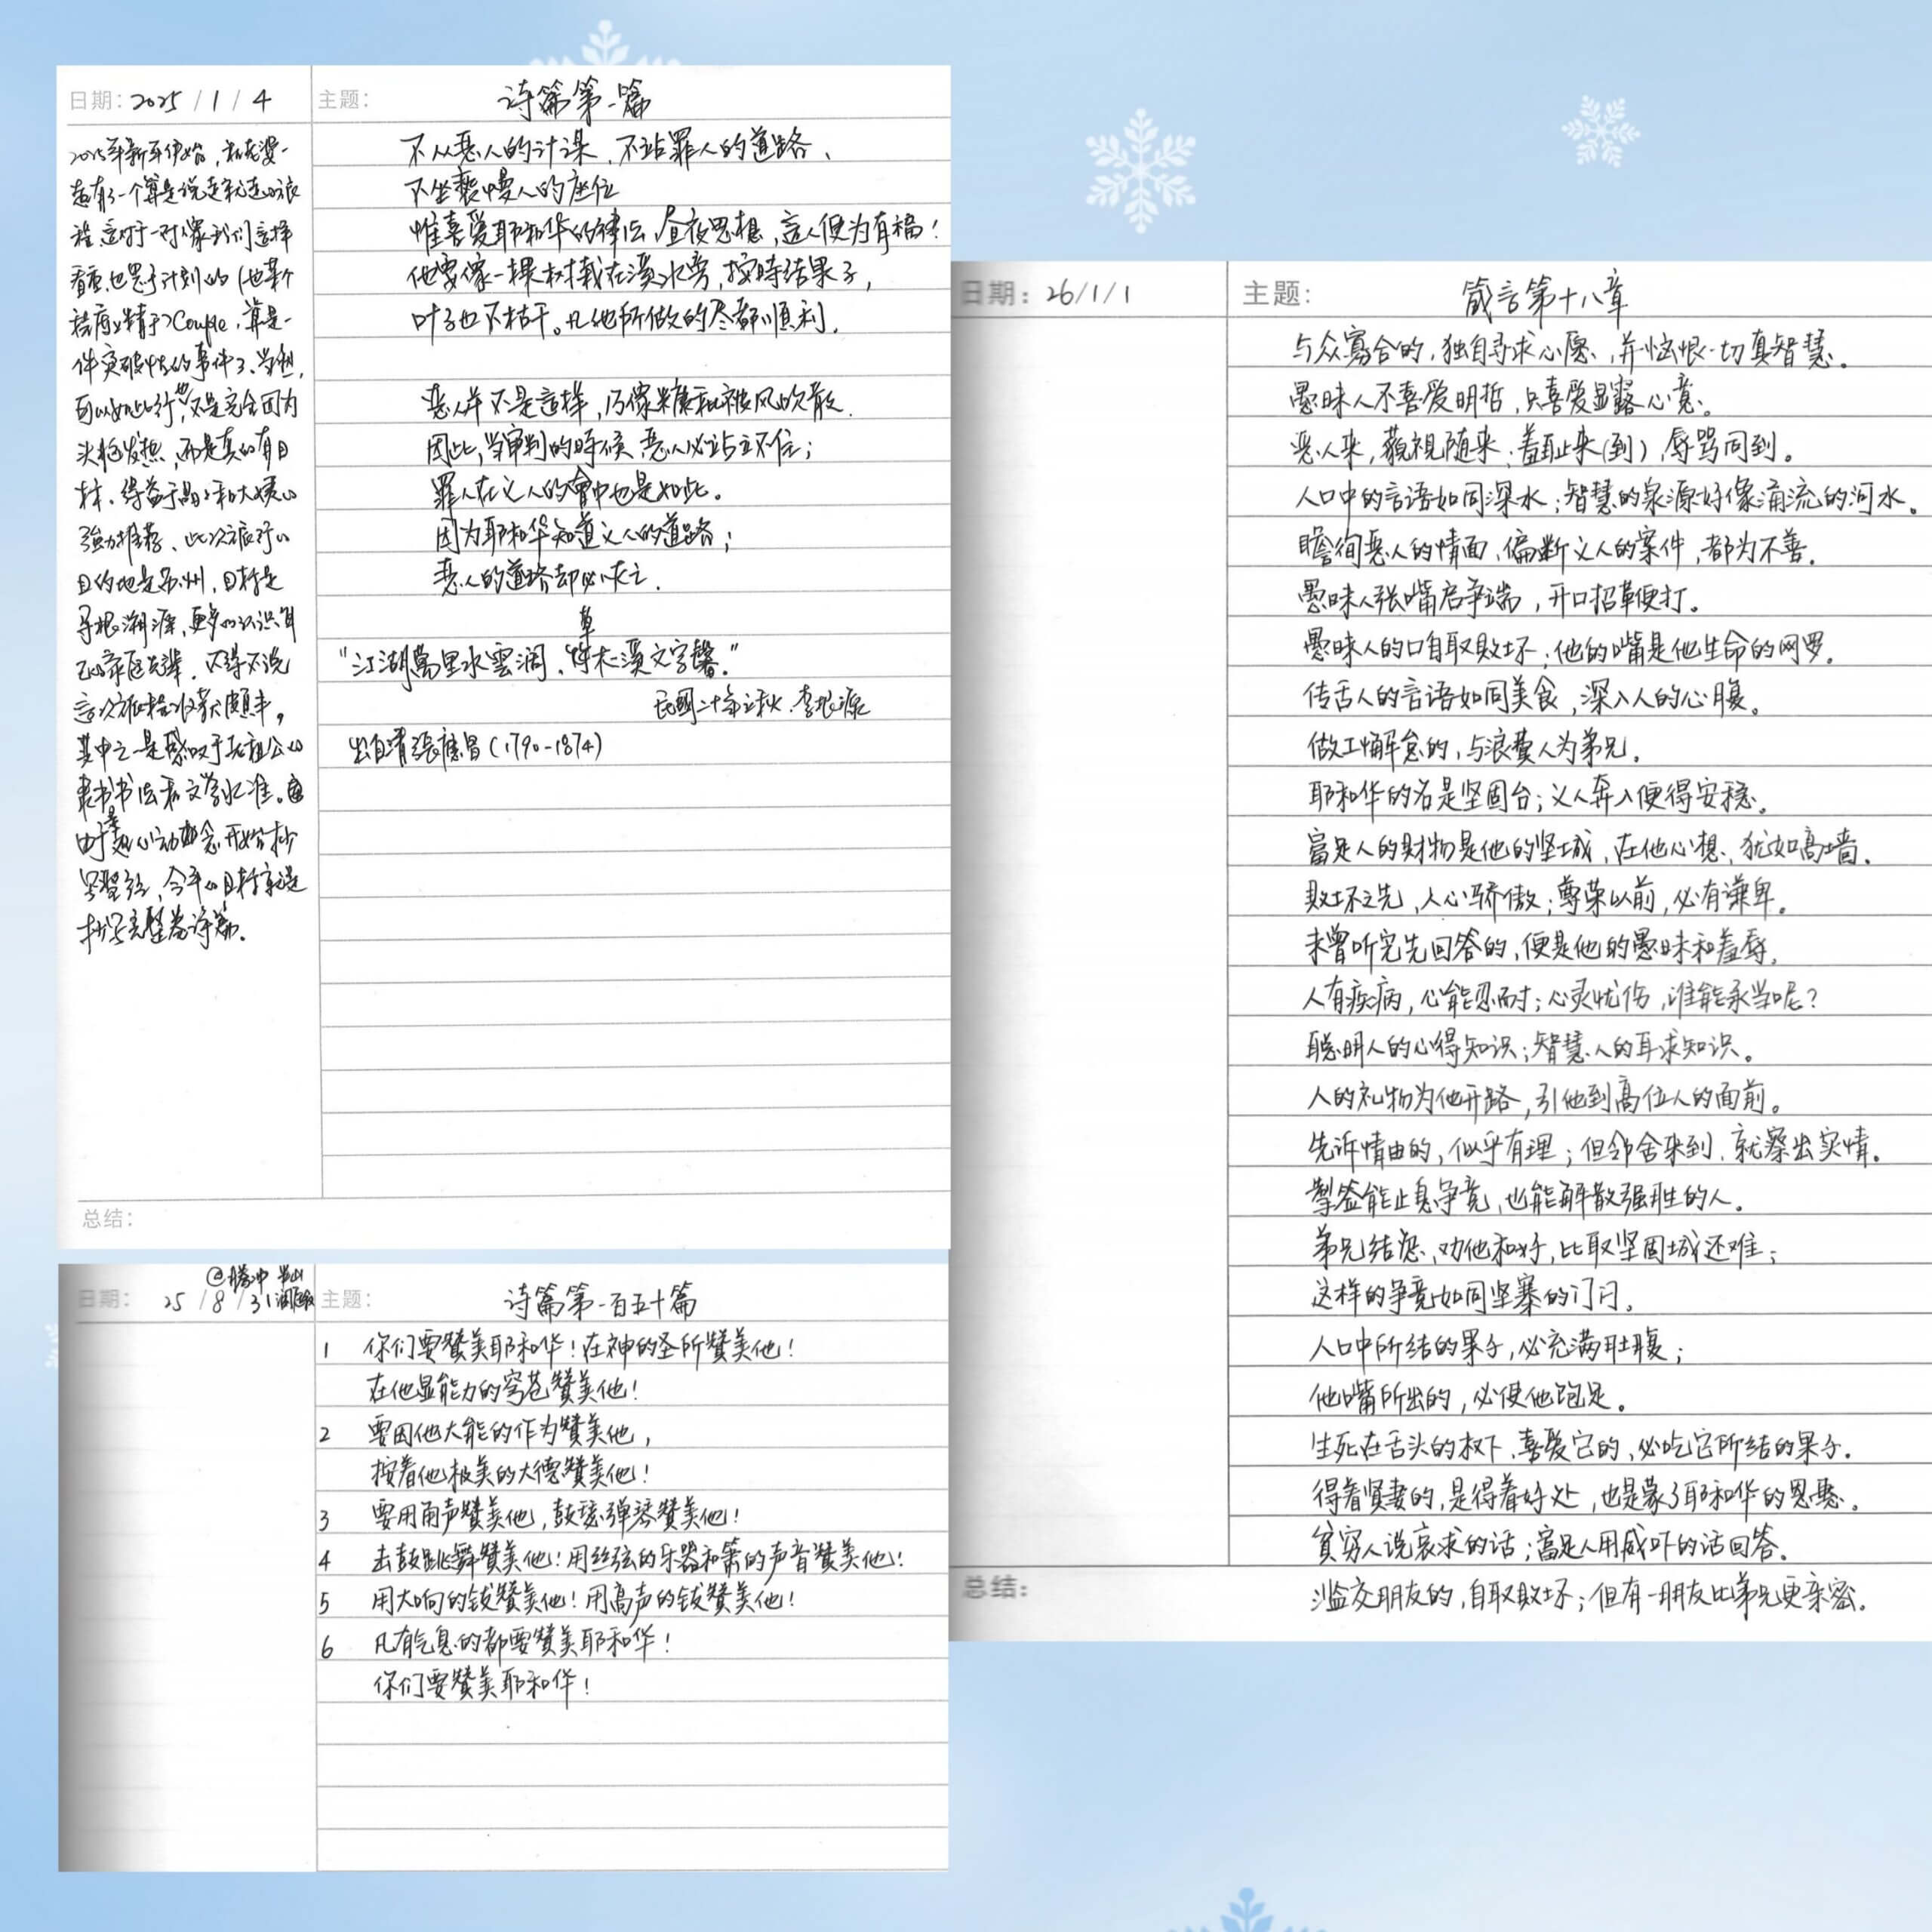 日期: 2025 / 1 / 4
主题: 诗篇第一篇
2025年新年伊始，和老婆一
起有了一个算是说走就走的旅
程，这对于一对像我们这样
看重也惯于计划的（也某个
程度上精于）Couple，算是一
件突破性的事件了。当然，
可以如此行也不是完全因为
头脑发热，而是真的有目
标。得益于
和大姨的
强力推荐、此次旅行的
目的地是苏州，目标是
寻根溯源，更多的认识自
己的家庭先辈。不得不说
这次旅程收获颇丰，
其中之一是感叹于老祖公的
隶书书法和文学水准。
由于是心动
念开始抄
写圣经，今年的目标就是
抄写完整卷诗篇。
不从恶人的计谋、不站罪人的道路、
不坐亵慢人的座位
惟喜爱耶和华的律法，昼夜思想，这人便为有福！
他要像一棵树栽在溪水旁，按時结果子，
叶子也不枯干。凡他所做的尽都順利。
恶人并不是這样，乃像糠秕被风吹散．
因此，当审判的時候，恶人必站立不住；
罪人在义人的會中也是如此。
因为耶和华知道义人的道路；
恶人的道路却必灭亡．
草
“江湖萬里水雲濶，
木溪文字馨。”
民國二十年之秋．李根源
出自清張應昌（1790-1874）
总结:
@腾冲
日期: 25 / 8 / 31
主题: 诗篇第一百五十篇
1 你们要赞美耶和华！在神的圣所赞美他！
在他显能力的穹苍赞美他！
2 要因他大能的作为赞美他，
按着他极美的大德赞美他！
3 要用角声赞美他，鼓瑟弹琴赞美他！
4 击鼓跳舞赞美他！用丝弦的乐器和箫的声音赞美他！
5 用大响的钹赞美他！用高声的钹赞美他！
6 凡有气息的都要赞美耶和华！
你们要赞美耶和华！
日期: 26/1/1
主题: 箴言第十八章
与众寡合的，独自寻求心愿，并恼恨一切真智慧。
愚昧人不喜爱明哲，只喜爱显露心意。
恶人来，藐视随来；羞耻来(到)，辱骂同到。
人口中的言语如同深水；智慧的泉源好像涌流的河水。
瞻徇恶人的情面，偏断义人的案件，都为不善。
愚昧人张嘴启争端，开口招鞭打。
愚昧人的口自取败坏；他的嘴是他生命的网罗。
传舌人的言语如同美食，深入人的心腹。
做工懈怠的，与浪费人为弟兄。
耶和华的名是坚固台；义人奔入便得安稳。
富足人的财物是他的坚城，在他心想，犹如高墙。
败坏之先，人心骄傲；尊荣以前，必有谦卑。
未曾听完先回答的，便是他的愚昧和羞辱。
人有疾病，心能忍耐；心灵忧伤，谁能承当呢？
聪明人的心得知识；智慧人的耳求知识。
人的礼物为他开路，引他到高位人的面前。
先诉情由的，似乎有理；但邻舍来到，就察出实情。
掣签能止息争竞，也能解散强胜的人。
弟兄结怨，劝他和好，比取坚固城还难；
这样的争竞如同坚寨的门闩。
人口中所结的果子，必充满肚腹；
他嘴所出的，必使他饱足。
生死在舌头的权下，喜爱它的，必吃它所结的果子．
得着贤妻的，是得着好处，也是蒙了耶和华的恩惠。
贫穷人说哀求的话；富足人用威吓的话回答。
总结:
滥交朋友的，自取败坏；但有一朋友比弟兄更亲密。